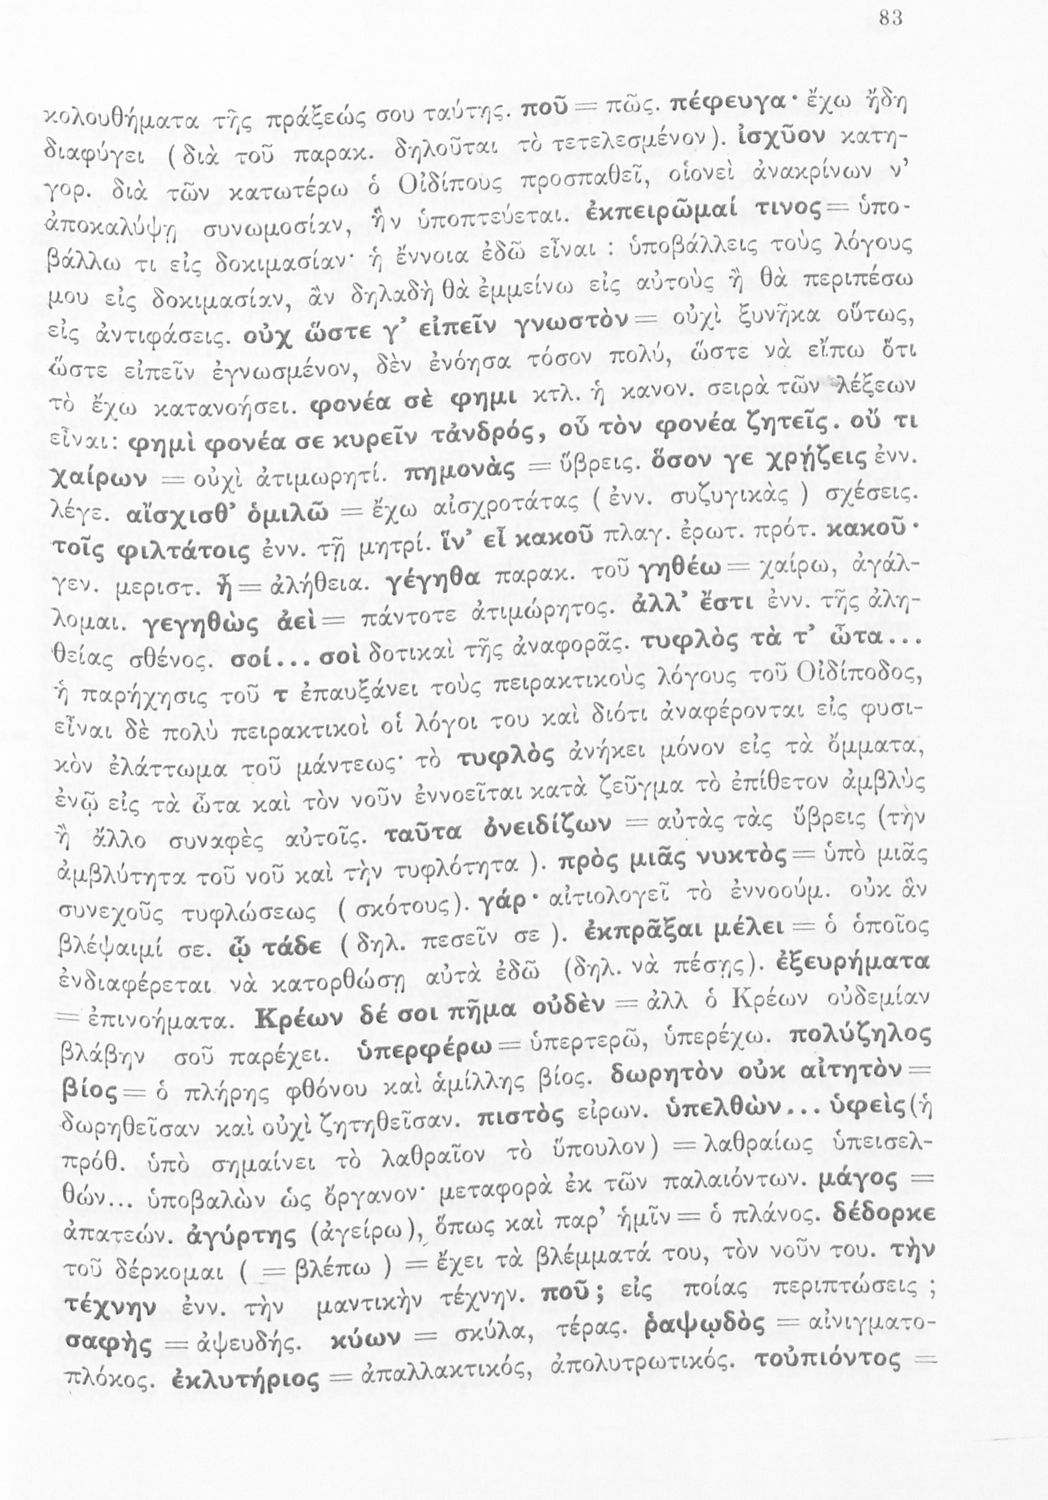 83
κολουθήματα τῆς πράξεώς σου ταύτης. ποῦ = πῶς. πέφευγα· ἔχω ἤδη
διαφύγει (διὰ τοῦ παρακ. δηλοῦται τὸ τετελεσμένον). ἰσχῦον κατη-
γορ. διὰ τῶν κατωτέρω ὁ Οἰδίπους προσπαθεῖ, οἱονεὶ ἀνακρίνων ν’
ἀποκαλύψῃ συνωμοσίαν, ἣν ὑποπτεύεται. ἐκπειρῶμαί τινος = ὑπο-
βάλλω τι εἰς δοκιμασίαν· ἡ ἔννοια ἐδῶ εἶναι : ὑποβάλλεις τοὺς λόγους
μου εἰς δοκιμασίαν, ἂν δηλαδὴ θὰ ἐμμείνω εἰς αὐτοὺς ἢ θὰ περιπέσω
εἰς ἀντιφάσεις. οὐχ ὥστε γ’ εἰπεῖν γνωστὸν = οὐχὶ ξυνῆκα οὕτως,
ὥστε εἰπεῖν ἐγνωσμένον, δὲν ἐνόησα τόσον πολύ, ὥστε νὰ εἴπω ὅτι
τὸ ἔχω κατανοήσει. φονέα σὲ φημι κτλ. ἡ κανον. σειρὰ τῶν λέξεων
εἶναι: φημὶ φονέα σε κυρεῖν τἀνδρός, οὗ τὸν φονέα ζητεῖς. οὔ τι
χαίρων = οὐχὶ ἀτιμωρητί. πημονὰς = ὕβρεις. ὅσον γε χρῄζεις ἐνν.
λέγε. αἴσχισθ’ ὁμιλῶ = ἔχω αἰσχροτάτας ( ἐνν. συζυγικὰς ) σχέσεις.
τοῖς φιλτάτοις ἐνν. τῇ μητρί. ἵν’ εἶ κακοῦ πλαγ. ἐρωτ. πρότ. κακοῦ·
γεν. μεριστ. ἦ = ἀλήθεια. γέγηθα παρακ. τοῦ γηθέω = χαίρω, ἀγάλ-
λομαι. γεγηθὼς ἀεὶ = πάντοτε ἀτιμώρητος. ἀλλ’ ἔστι ἐνν. τῆς ἀλη-
θείας σθένος. σοί... σοὶ δοτικαὶ τῆς ἀναφορᾶς. τυφλὸς τὰ τ’ ὦτα...
ἡ παρήχησις τοῦ τ ἐπαυξάνει τοὺς πειρακτικοὺς λόγους τοῦ Οἰδίποδος,
εἶναι δὲ πολὺ πειρακτικοὶ οἱ λόγοι του καὶ διότι ἀναφέρονται εἰς φυσι-
κὸν ἐλάττωμα τοῦ μάντεως· τὸ τυφλὸς ἀνήκει μόνον εἰς τὰ ὄμματα,
ἐνῷ εἰς τὰ ὦτα καὶ τὸν νοῦν ἐννοεῖται κατὰ ζεῦγμα τὸ ἐπίθετον ἀμβλὺς
ἢ ἄλλο συναφὲς αὐτοῖς. ταῦτα ὀνειδίζων = αὐτὰς τὰς ὕβρεις (τὴν
ἀμβλύτητα τοῦ νοῦ καὶ τὴν τυφλότητα ). πρὸς μιᾶς νυκτὸς = ὑπὸ μιᾶς
συνεχοῦς τυφλώσεως ( σκότους). γάρ· αἰτιολογεῖ τὸ ἐννοούμ. οὐκ ἂν
βλέψαιμί σε. ᾧ τάδε ( δηλ. πεσεῖν σε ). ἐκπρᾶξαι μέλει = ὁ ὁποῖος
ἐνδιαφέρεται νὰ κατορθώσῃ αὐτὰ ἐδῶ (δηλ. νὰ πέσῃς). ἐξευρήματα
= ἐπινοήματα. Κρέων δέ σοι πῆμα οὐδὲν = ἀλλ ὁ Κρέων οὐδεμίαν
βλάβην σοῦ παρέχει. ὑπερφέρω = ὑπερτερῶ, ὑπερέχω. πολύζηλος
βίος = ὁ πλήρης φθόνου καὶ ἁμίλλης βίος. δωρητὸν οὐκ αἰτητὸν =
δωρηθεῖσαν καὶ οὐχὶ ζητηθεῖσαν. πιστὸς εἰρων. ὑπελθὼν... ὑφεὶς (ἡ
πρόθ. ὑπὸ σημαίνει τὸ λαθραῖον τὸ ὕπουλον) = λαθραίως ὑπεισελ-
θών... ὑποβαλὼν ὡς ὄργανον· μεταφορὰ ἐκ τῶν παλαιόντων. μάγος =
ἀπατεών. ἀγύρτης (ἀγείρω), ὅπως καὶ παρ’ ἡμῖν = ὁ πλάνος. δέδορκε
τοῦ δέρκομαι ( = βλέπω ) = ἔχει τὰ βλέμματά του, τὸν νοῦν του. τὴν
τέχνην ἐνν. τὴν μαντικὴν τέχνην. ποῦ ; εἰς ποίας περιπτώσεις ;
σαφὴς = ἀψευδής. κύων = σκύλα, τέρας. ῥαψῳδὸς = αἰνιγματο-
πλόκος. ἐκλυτήριος = ἀπαλλακτικός, ἀπολυτρωτικός. τοὐπιόντος =